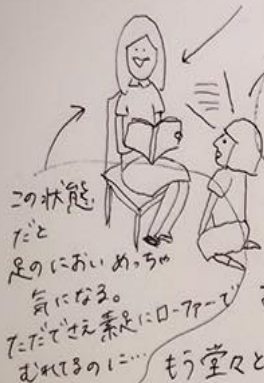 この状態
だと
足のにおいめっちゃ
気になる。
ただでさえ素足にローファーで
むれてるのに…
もう堂々と